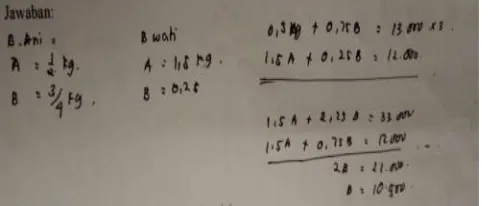 Jawaban:
B. Ani =
A = 1/2 kg.
B = 3/4 kg.
B wati
A = 1,5 kg.
B = 0,25
0,5 kg + 0,75B = 13 000 x 3
1,5 A + 0,25 B = 12.000
1,5 A + 2,25 B = 33 000
1.5A + 0,75B = 12000
2B = 21.000.
B = 10.500.